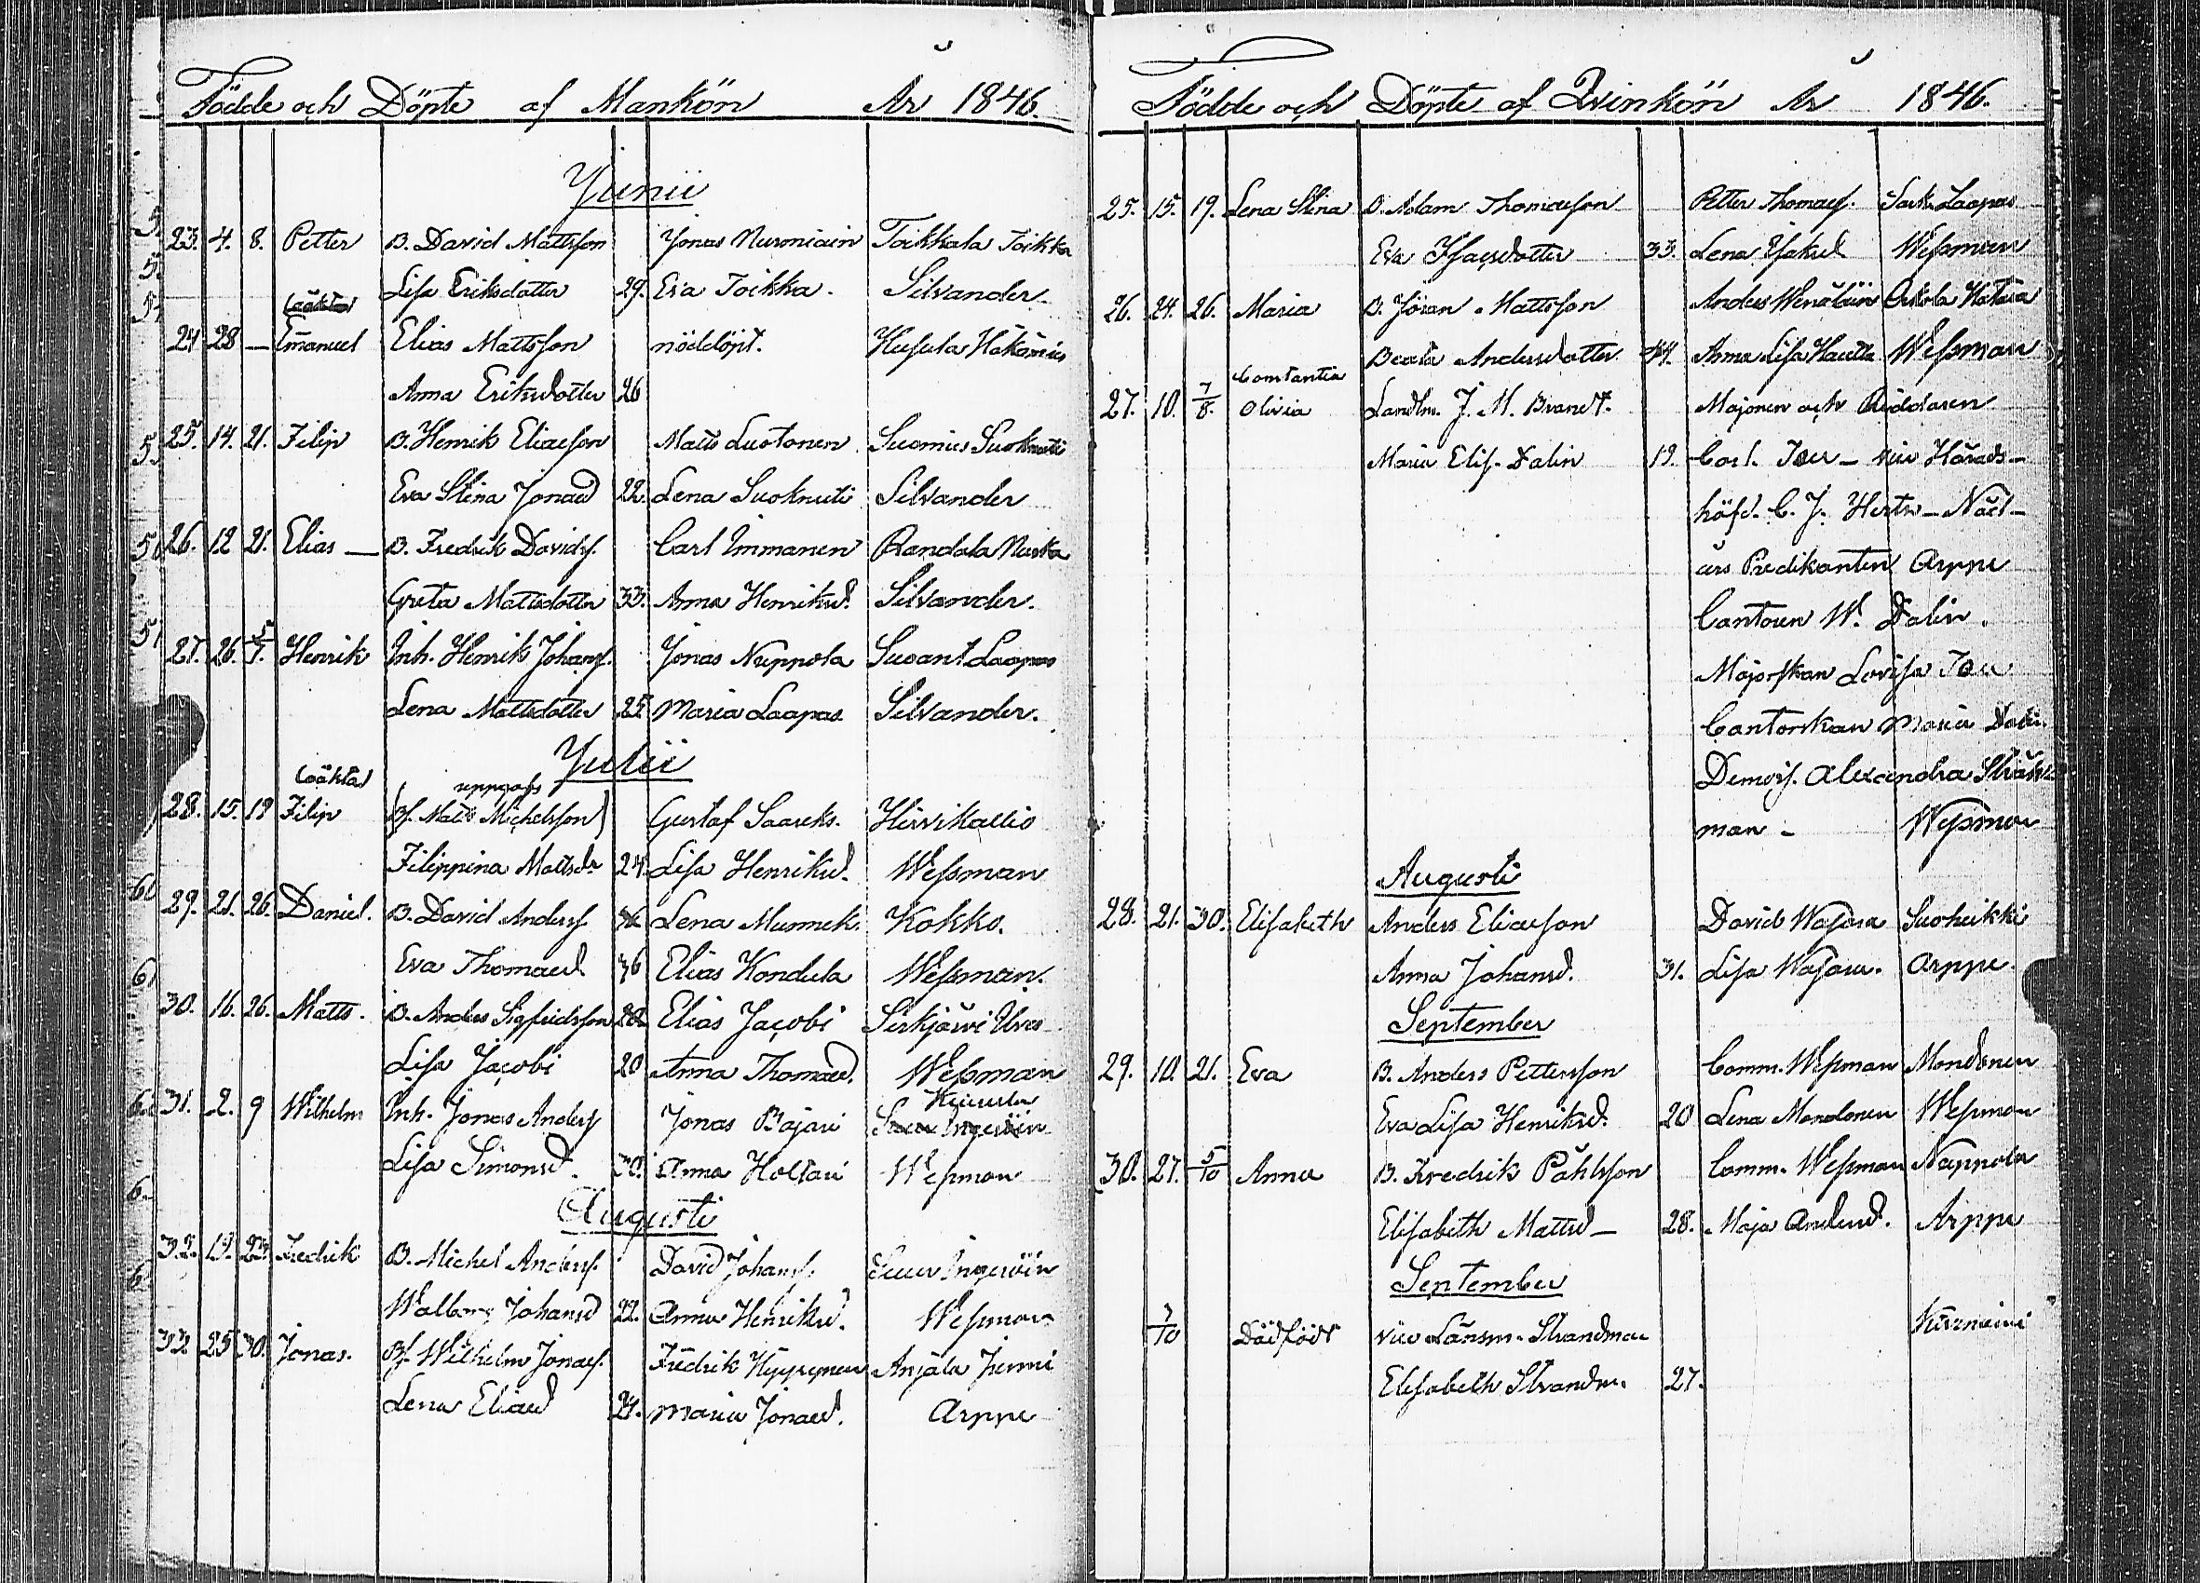 Födde och Döpte af Mankön År 1846.
Junii
23. 4. 8. Petter B. David Mattsson Jonas Nuroniain Toikkala Toikka
Lisa Eriksdotter 29. Eva Toikka. Silvander.
(oäkta)
24 28 — Emanuel Elias Mattsson nöddöpt. Husula Häkämies
Anna Eriksdotter 26
25. 14. 21. Filip B. Henrik Eliasson Matts Luotonen Suomies Suoknuti
Eva Stina Jonasd 22. Lena Suoknuti Silvander
26. 12 21. Elias — B. Fredrik Davids. Carl Immanen Randala Naska
Greta Mattsdotter 33. Anna Henriksd. Silvander.
27. 26. 5/7. Henrik Inh. Henrik Johans. Jonas Nappola Suoant Laapas
Lena Mattsdotter 25 Maria Laapas. Silvander.
Julii
(oäkta) uppgafs
28. 15. 19 Filip (Bf. Matts Michelsson) Gustaf Saareks. Hirvikallio
Filippina Mattsdr 24. Lisa Henriksd. Wessman
29. 21. 26. Daniel. B. David Anders Lena Munnek. Kokko.
Eva Thomasd. 36 Elias Kondula Wessman.
30. 16. 26. Matts. B. Anders Sigfridsson Elias Jacobi Sirkjärvi Uves
Lisa Jacobi 20 Anna Thomasd. Wessman
31. 2. 9 Wilhelm Inh. Jonas Anders Jonas Bajari
Lisa Simonsd. 30. Anna Holtari Wessman
Augusti
32. 19. 23. Fredrik B. Michel Anders. David Johans. Suur Ingeroin
Walborg Johansd 22. Anna Henriksd. Wessman
33 25 30. Jonas. Bf. Wilhelm Jonas. Fredrik Hyypynen Anjala Junni
Lena Eliasd 24. Maria Jonasd. Arppe
Födde och Döpte af Qvinkön År 1846.
25. 15. 19. Lena Stina B. Adam Thomasson Petter Thomas. Laapas
Eva Isacsdotter 33. Lena Isaksd Wessman
26. 24. 26. Maria B. Jöran Mattsson Anders Wenäläin Ankola Hatava
Beata Andersdotter 44. Anna Lisa Hautta Wessman
Constantia
27. 10. 7/8. Olivia Landtm. J. M. Brandt. Majoren och Riddaren
Maria Elis. Dalin 19. Carl — vice Härads-
höfd. C. J. Hertz — Nåd-
års Predikanten Arppe
Cantorn W. Dalin.
Majorskan Lovisa
Cantorskan Maria Dalin
Demois. Alexandra Stråhl-
man — Wessman
Augusti
28. 21. 30. Elisabeth Anders Eliasson David Wasara Suoheikki
Anna Johansd. 31. Lisa Wasara. Arppe.
September
29. 10. 21. Eva B. Anders Pettersson Comm. Wessman Mondonen
Eva Lisa Henriksd. 20 Lena Mondonen Wessman
30. 27. 5/10 Anna B. Fredrik Påhlsson Comm. Wessman Nappola
Elisabeth Mattsd — 28. Maja Andersd. Arppe
September
7/10 Dödfödt vice Länsm. Strandman Kurnaini
Elisabeth Strandm. 27.